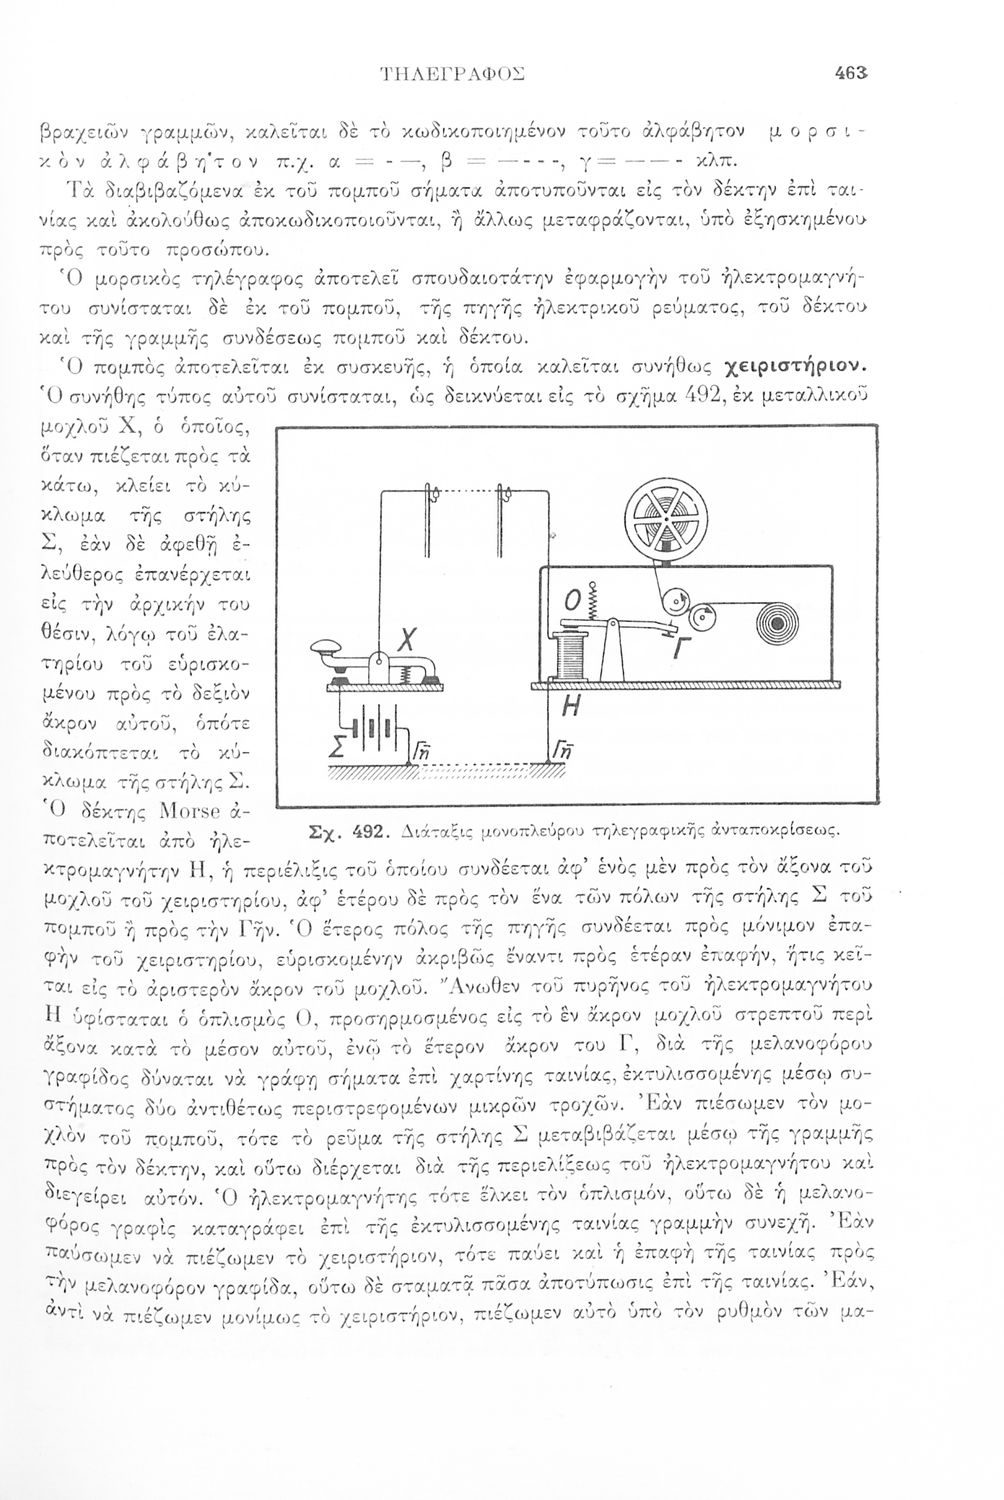 ΤΗΛΕΓΡΑΦΟΣ 463
βραχειῶν γραμμῶν, καλεῖται δὲ τὸ κωδικοποιημένον τοῦτο ἀλφάβητον μ ο ρ σ ι -
κ ὸ ν ἀ λ φ ά β η τ ο ν π.χ. α = - —, β = — - - -, γ = — — - κλπ.
Τὰ διαβιβαζόμενα ἐκ τοῦ πομποῦ σήματα ἀποτυποῦνται εἰς τὸν δέκτην ἐπὶ ται-
νίας καὶ ἀκολούθως ἀποκωδικοποιοῦνται, ἢ ἄλλως μεταφράζονται, ὑπὸ ἐξησκημένου
πρὸς τοῦτο προσώπου.
Ὁ μορσικὸς τηλέγραφος ἀποτελεῖ σπουδαιοτάτην ἐφαρμογὴν τοῦ ἠλεκτρομαγνή-
του συνίσταται δὲ ἐκ τοῦ πομποῦ, τῆς πηγῆς ἠλεκτρικοῦ ρεύματος, τοῦ δέκτου
καὶ τῆς γραμμῆς συνδέσεως πομποῦ καὶ δέκτου.
Ὁ πομπὸς ἀποτελεῖται ἐκ συσκευῆς, ἡ ὁποία καλεῖται συνήθως χειριστήριον.
Ὁ συνήθης τύπος αὐτοῦ συνίσταται, ὡς δεικνύεται εἰς τὸ σχῆμα 492, ἐκ μεταλλικοῦ
μοχλοῦ Χ, ὁ ὁποῖος,
ὅταν πιέζεται πρὸς τὰ
κάτω, κλείει τὸ κύ-
κλωμα τῆς στήλης
Σ, ἐὰν δὲ ἀφεθῇ ἐ-
λεύθερος ἐπανέρχεται
εἰς τὴν ἀρχικήν του
θέσιν, λόγῳ τοῦ ἐλα-
τηρίου τοῦ εὑρισκο-
μένου πρὸς τὸ δεξιὸν
ἄκρον αὐτοῦ, ὁπότε
διακόπτεται τὸ κύ-
κλωμα τῆς στήλης Σ.
Ὁ δέκτης Morse ἀ-
ποτελεῖται ἀπὸ ἠλε-
Χ
Ο
Γ
Η
Σ
Γῆ
Γῆ
Σχ. 492. Διάταξις μονοπλεύρου τηλεγραφικῆς ἀνταποκρίσεως.
κτρομαγνήτην Η, ἡ περιέλιξις τοῦ ὁποίου συνδέεται ἀφ’ ἑνὸς μὲν πρὸς τὸν ἄξονα τοῦ
μοχλοῦ τοῦ χειριστηρίου, ἀφ’ ἑτέρου δὲ πρὸς τὸν ἕνα τῶν πόλων τῆς στήλης Σ τοῦ
πομποῦ ἢ πρὸς τὴν Γῆν. Ὁ ἕτερος πόλος τῆς πηγῆς συνδέεται πρὸς μόνιμον ἐπα-
φὴν τοῦ χειριστηρίου, εὑρισκομένην ἀκριβῶς ἔναντι πρὸς ἑτέραν ἐπαφήν, ἥτις κεῖ-
ται εἰς τὸ ἀριστερὸν ἄκρον τοῦ μοχλοῦ. Ἄνωθεν τοῦ πυρῆνος τοῦ ἠλεκτρομαγνήτου
Η ὑφίσταται ὁ ὁπλισμὸς Ο, προσηρμοσμένος εἰς τὸ ἓν ἄκρον μοχλοῦ στρεπτοῦ περὶ
ἄξονα κατὰ τὸ μέσον αὐτοῦ, ἐνῷ τὸ ἕτερον ἄκρον του Γ, διὰ τῆς μελανοφόρου
γραφίδος δύναται νὰ γράφῃ σήματα ἐπὶ χαρτίνης ταινίας, ἐκτυλισσομένης μέσῳ συ-
στήματος δύο ἀντιθέτως περιστρεφομένων μικρῶν τροχῶν. Ἐὰν πιέσωμεν τὸν μο-
χλὸν τοῦ πομποῦ, τότε τὸ ρεῦμα τῆς στήλης Σ μεταβιβάζεται μέσῳ τῆς γραμμῆς
πρὸς τὸν δέκτην, καὶ οὕτω διέρχεται διὰ τῆς περιελίξεως τοῦ ἠλεκτρομαγνήτου καὶ
διεγείρει αὐτόν. Ὁ ἠλεκτρομαγνήτης τότε ἕλκει τὸν ὁπλισμόν, οὕτω δὲ ἡ μελανο-
φόρος γραφὶς καταγράφει ἐπὶ τῆς ἐκτυλισσομένης ταινίας γραμμὴν συνεχῆ. Ἐὰν
παύσωμεν νὰ πιέζωμεν τὸ χειριστήριον, τότε παύει καὶ ἡ ἐπαφὴ τῆς ταινίας πρὸς
τὴν μελανοφόρον γραφίδα, οὕτω δὲ σταματᾷ πᾶσα ἀποτύπωσις ἐπὶ τῆς ταινίας. Ἐάν,
ἀντὶ νὰ πιέζωμεν μονίμως τὸ χειριστήριον, πιέζωμεν αὐτὸ ὑπὸ τὸν ρυθμὸν τῶν μα-